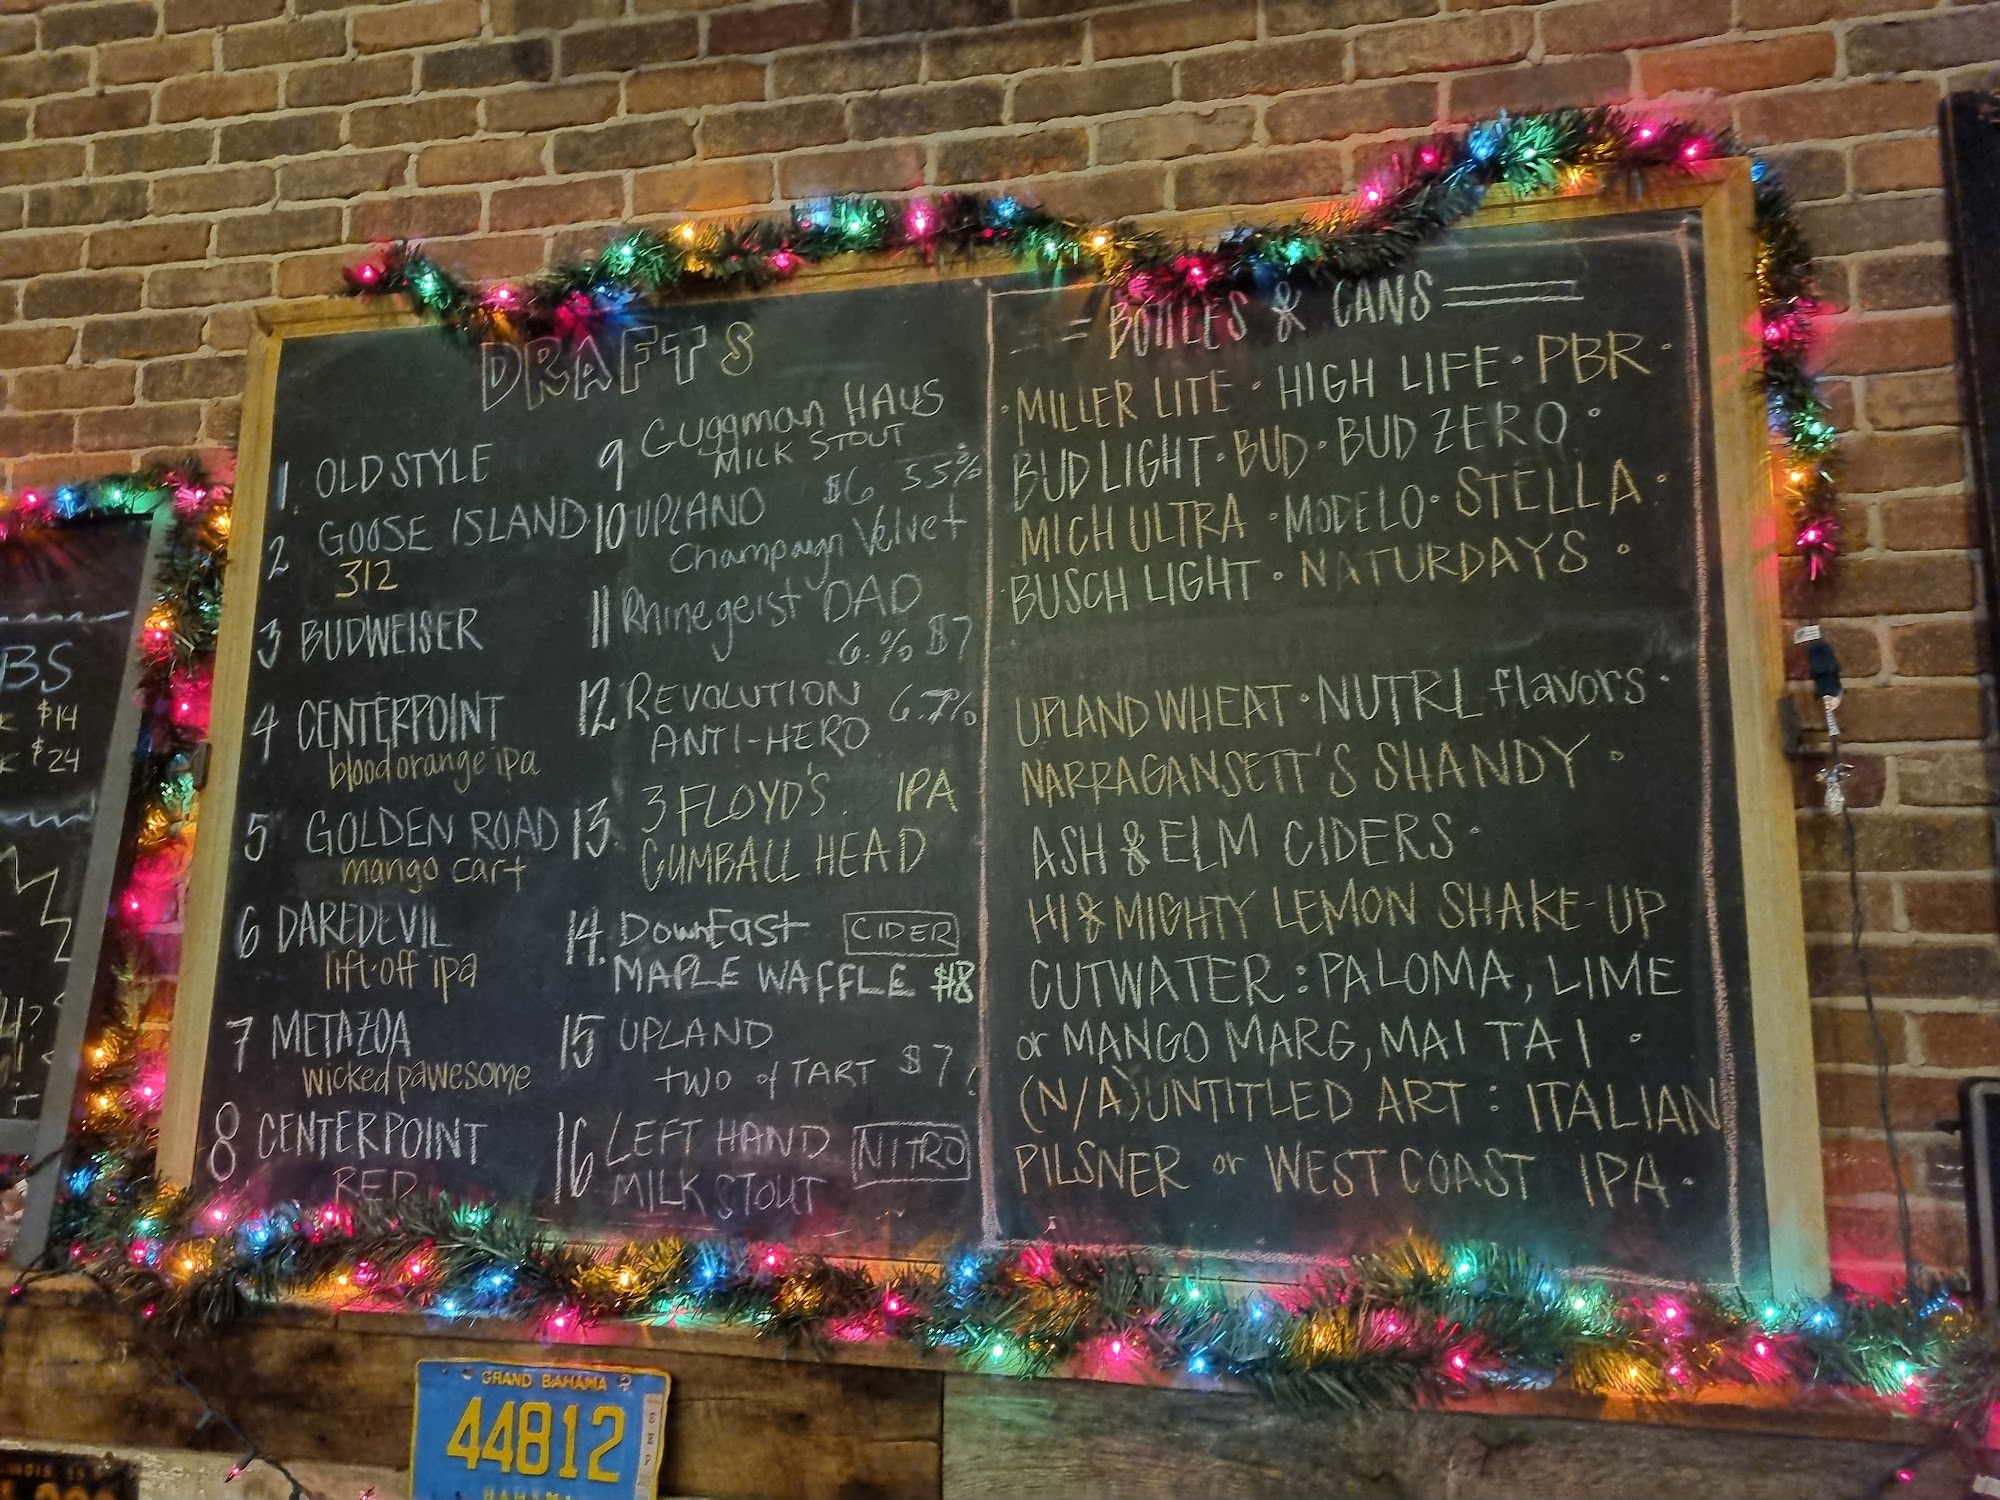 DRAFTS
1. OLD STYLE
2 GOOSE ISLAND
312
3 BUDWEISER
4 CENTERPOINT
blood orange ipa
5 GOLDEN ROAD
mango cart
6 DAREDEVIL
lift-off ipa
7 METAZOA
wicked pawesome
8 CENTERPOINT
RED
9 Guggman HAUS
MILK STOUT
$6 5.5%
10 UPLAND
Champagn Velvet
11 Rhinegeist DAD
6.% $7
12 REVOLUTION 6.7%
ANTI-HERO
13. 3 FLOYD'S. IPA
GUMBALL HEAD
14. DownEast CIDER
MAPLE WAFFLE $8
15 UPLAND
TWO of TART $7
16 LEFT HAND NITRO
MILK STOUT
BOTTLES & CANS
· MILLER LITE · HIGH LIFE · PBR ·
BUD LIGHT · BUD · BUD ZERO ·
MICH ULTRA · MODELO · STELLA ·
BUSCH LIGHT · NATURDAYS ·
UPLAND WHEAT · NUTRL flavors ·
NARRAGANSETT'S SHANDY ·
ASH & ELM CIDERS ·
HI & MIGHTY LEMON SHAKE-UP
CUTWATER : PALOMA, LIME
or MANGO MARG, MAI TAI ·
(N/A) UNTITLED ART : ITALIAN
PILSNER or WEST COAST IPA ·
BS
$14
$24
GRAND BAHAMA
44812